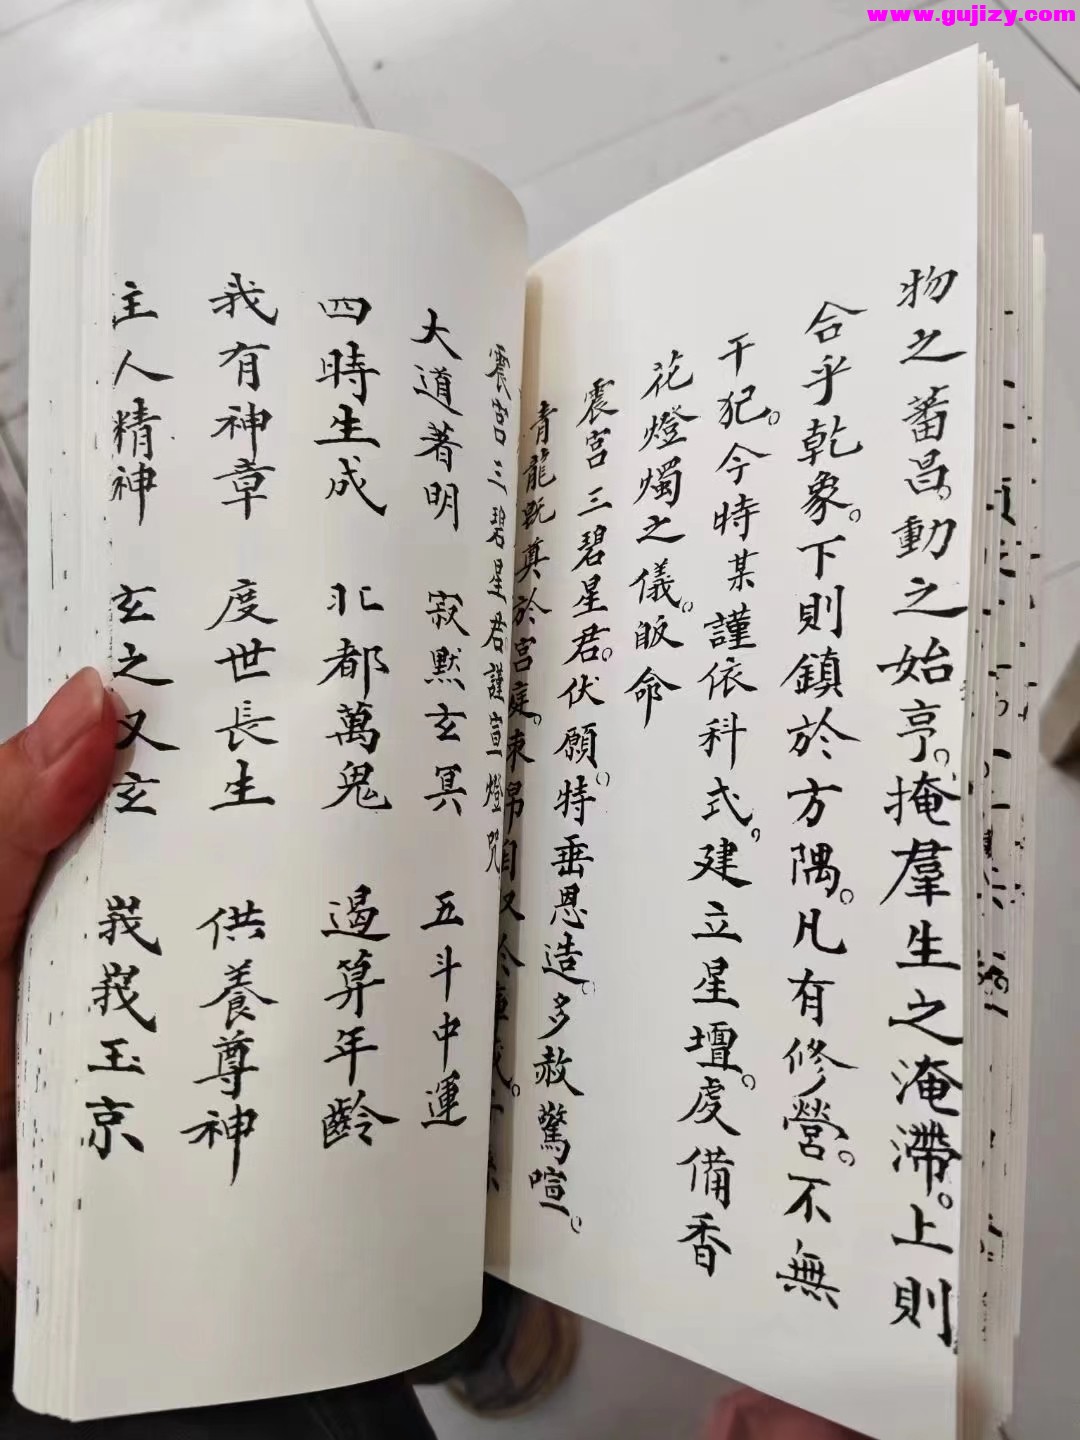 www.gujizy.com
物之蕃昌。動之始亨。掩羣生之淹滯。上則
合乎乾象。下則鎮於方隅。凡有修營。不無
干犯。今時某謹依科式。建立星壇。虔備香
花燈燭之儀。皈命
震宮三碧星君。伏願。特垂恩造。多赦驚喧。
青龍既奠於宮庭。束帛自又於
震宮三碧星君謹宣燈咒
大道著明 寂默玄冥 五斗中運
四時生成 北都萬鬼 遏算年齡
我有神章 度世長生 供養尊神
主人精神 玄之又玄 峩峩玉京